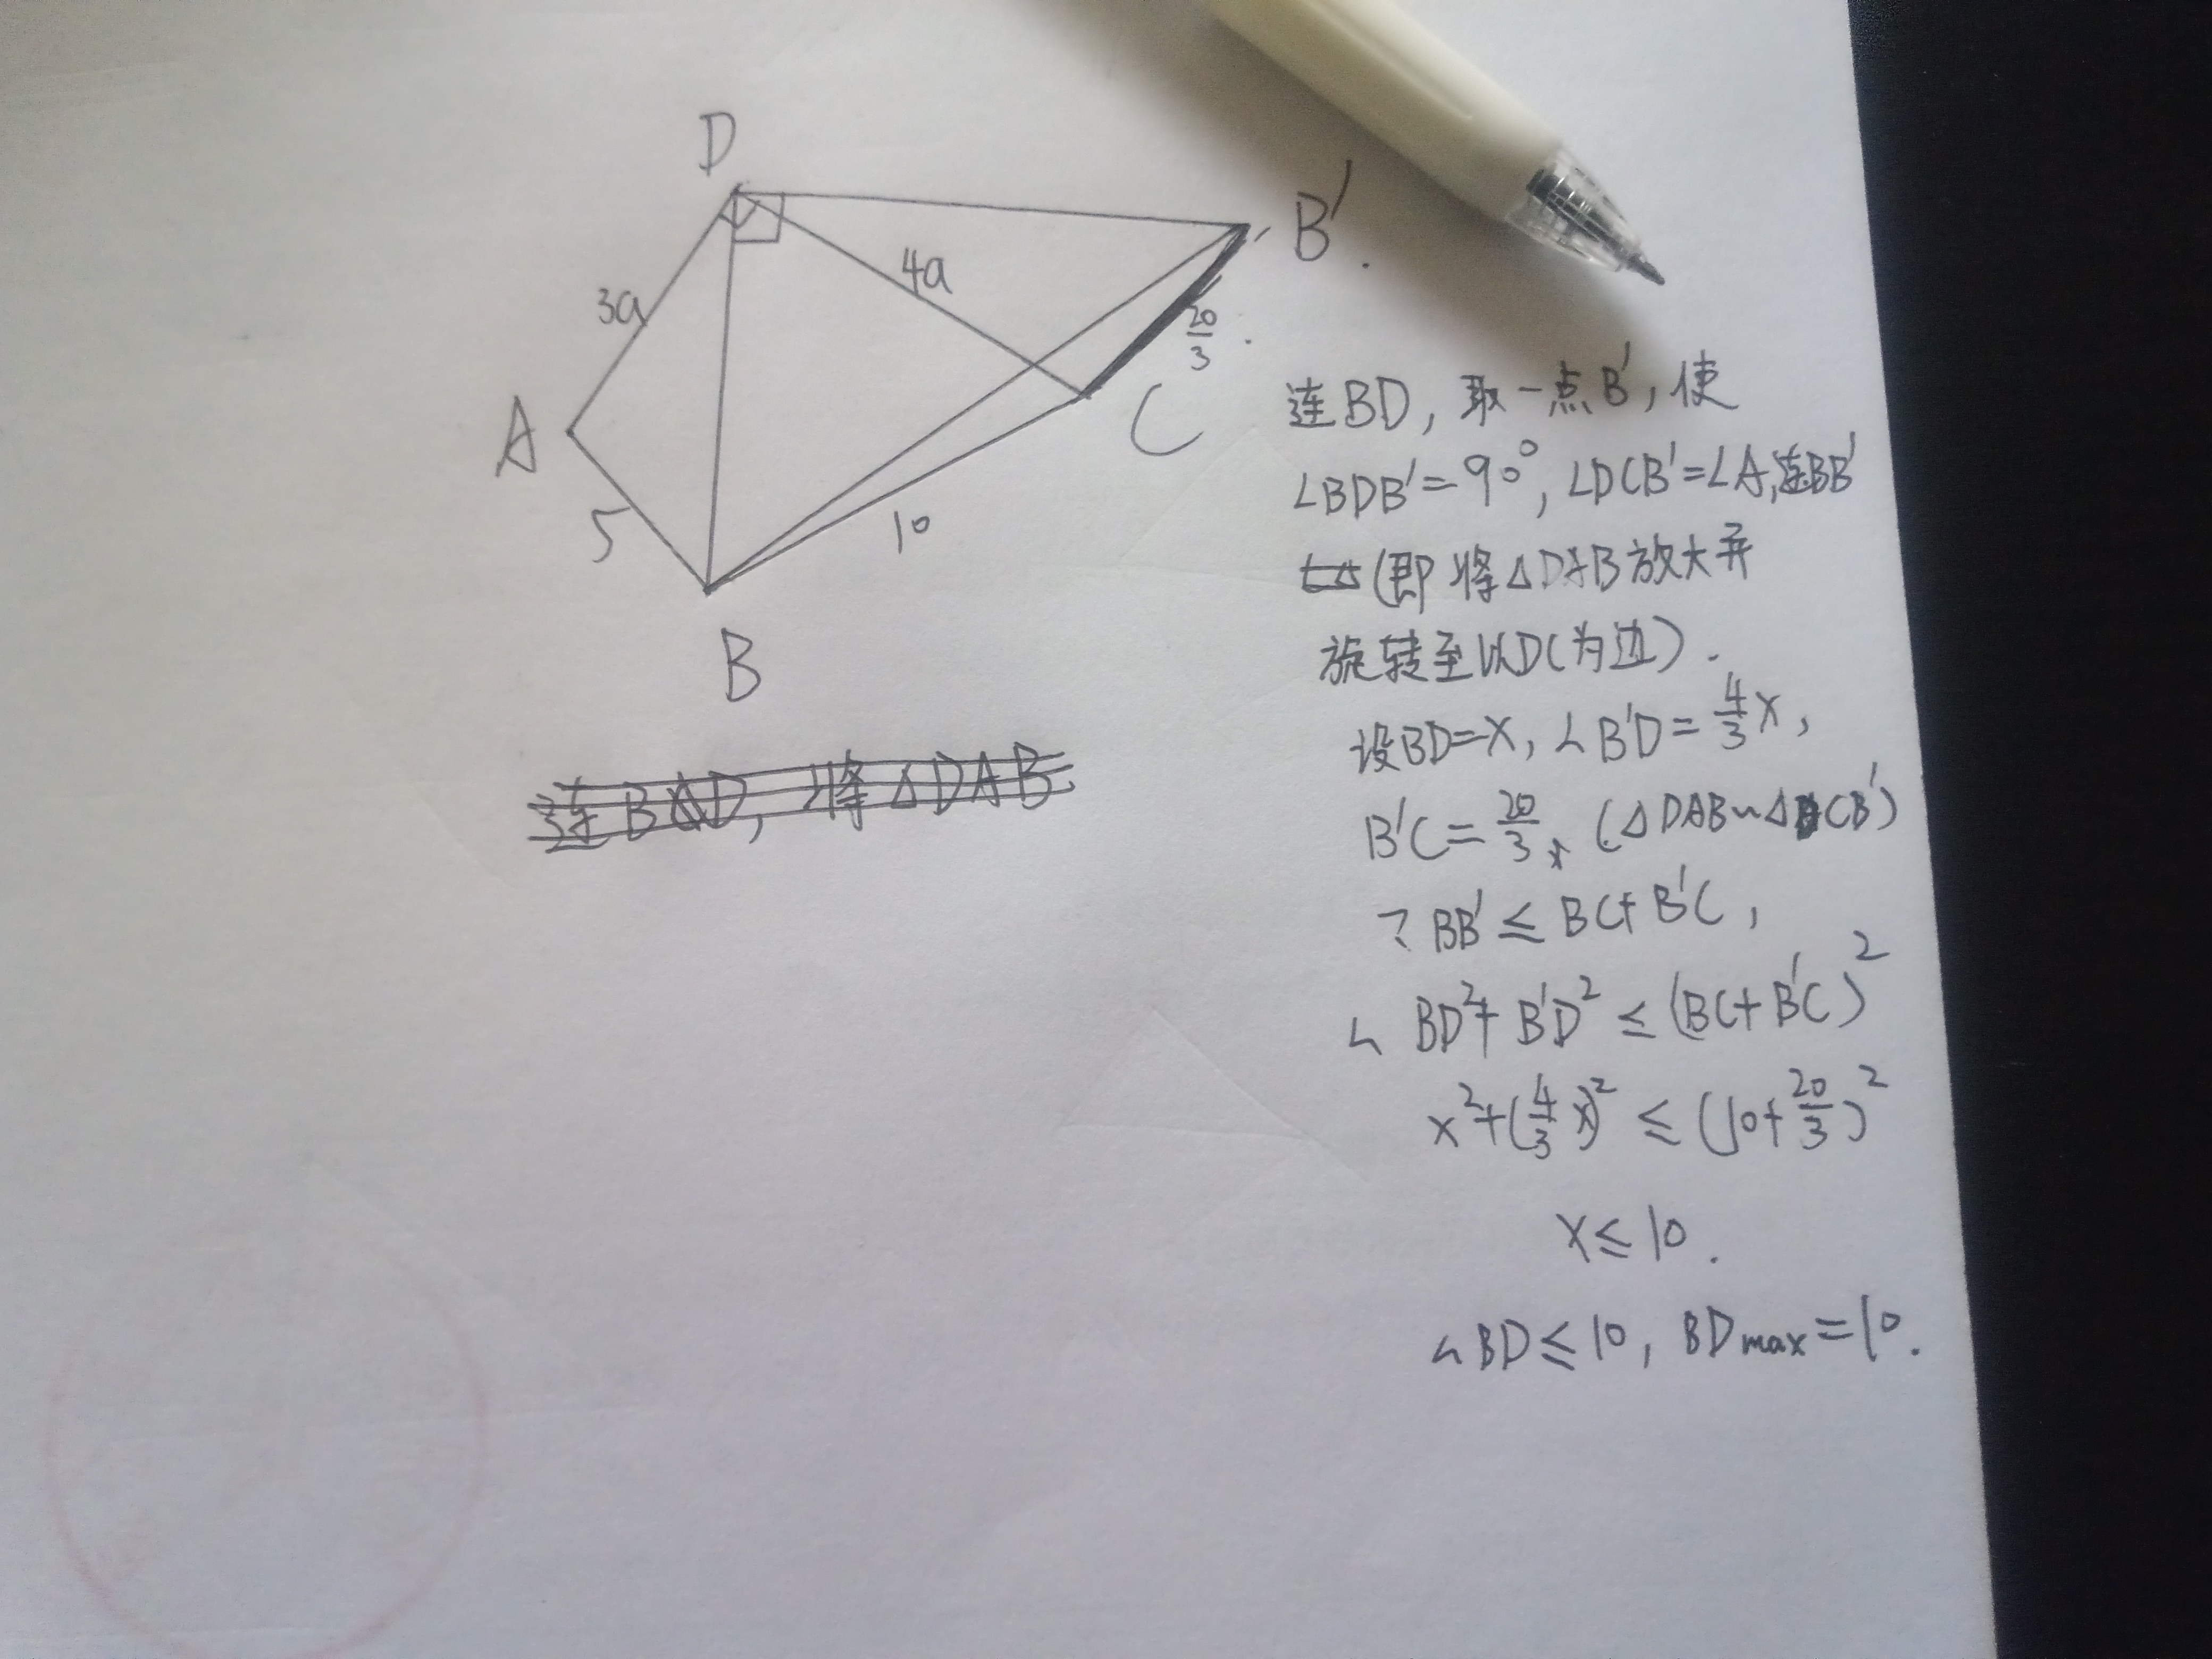 D
B'
3a
4a
20/3
A
C
5
10
B
连BD, 取一点B', 使
∠BDB'=90°, ∠DCB'=∠A, 连BB'
(即将△DAB放大并
旋转至以DC为边).
设BD=x, ∴B'D=4/3x,
B'C=20/3, (△DAB∽△DCB')
∵BB'≤BC+B'C,
∴BD²+B'D²≤(BC+B'C)²
x²+(4/3x)²≤(10+20/3)²
x≤10.
∴BD≤10, BDmax=10.
连BD, 将△DAB